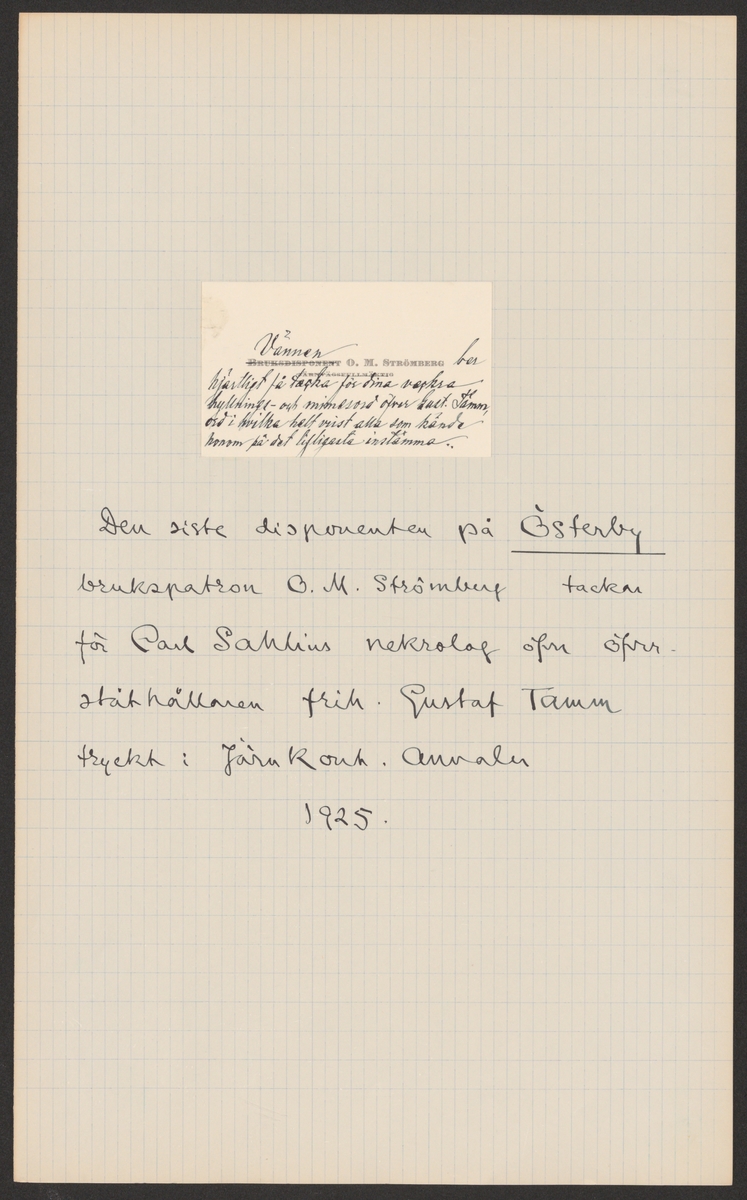 Vännen
BRUKSDISPONENT O. M. STRÖMBERG ber
JÄRNVÄGSFULLMÄKTIG
hjärtligt få tacka för dina vackra
hyllnings- och minnesord öfver Gust. Tamm,
ord i hvilka helt visst alla som kände
honom på det lifligaste instämma.
Den siste disponenten på Österby
brukspatron O. M. Strömberg tackar
för Carl Sahlins nekrolog öfver öfver-
ståthållaren frih. Gustaf Tamm
tryckt i JärnKont. Annaler
1925.